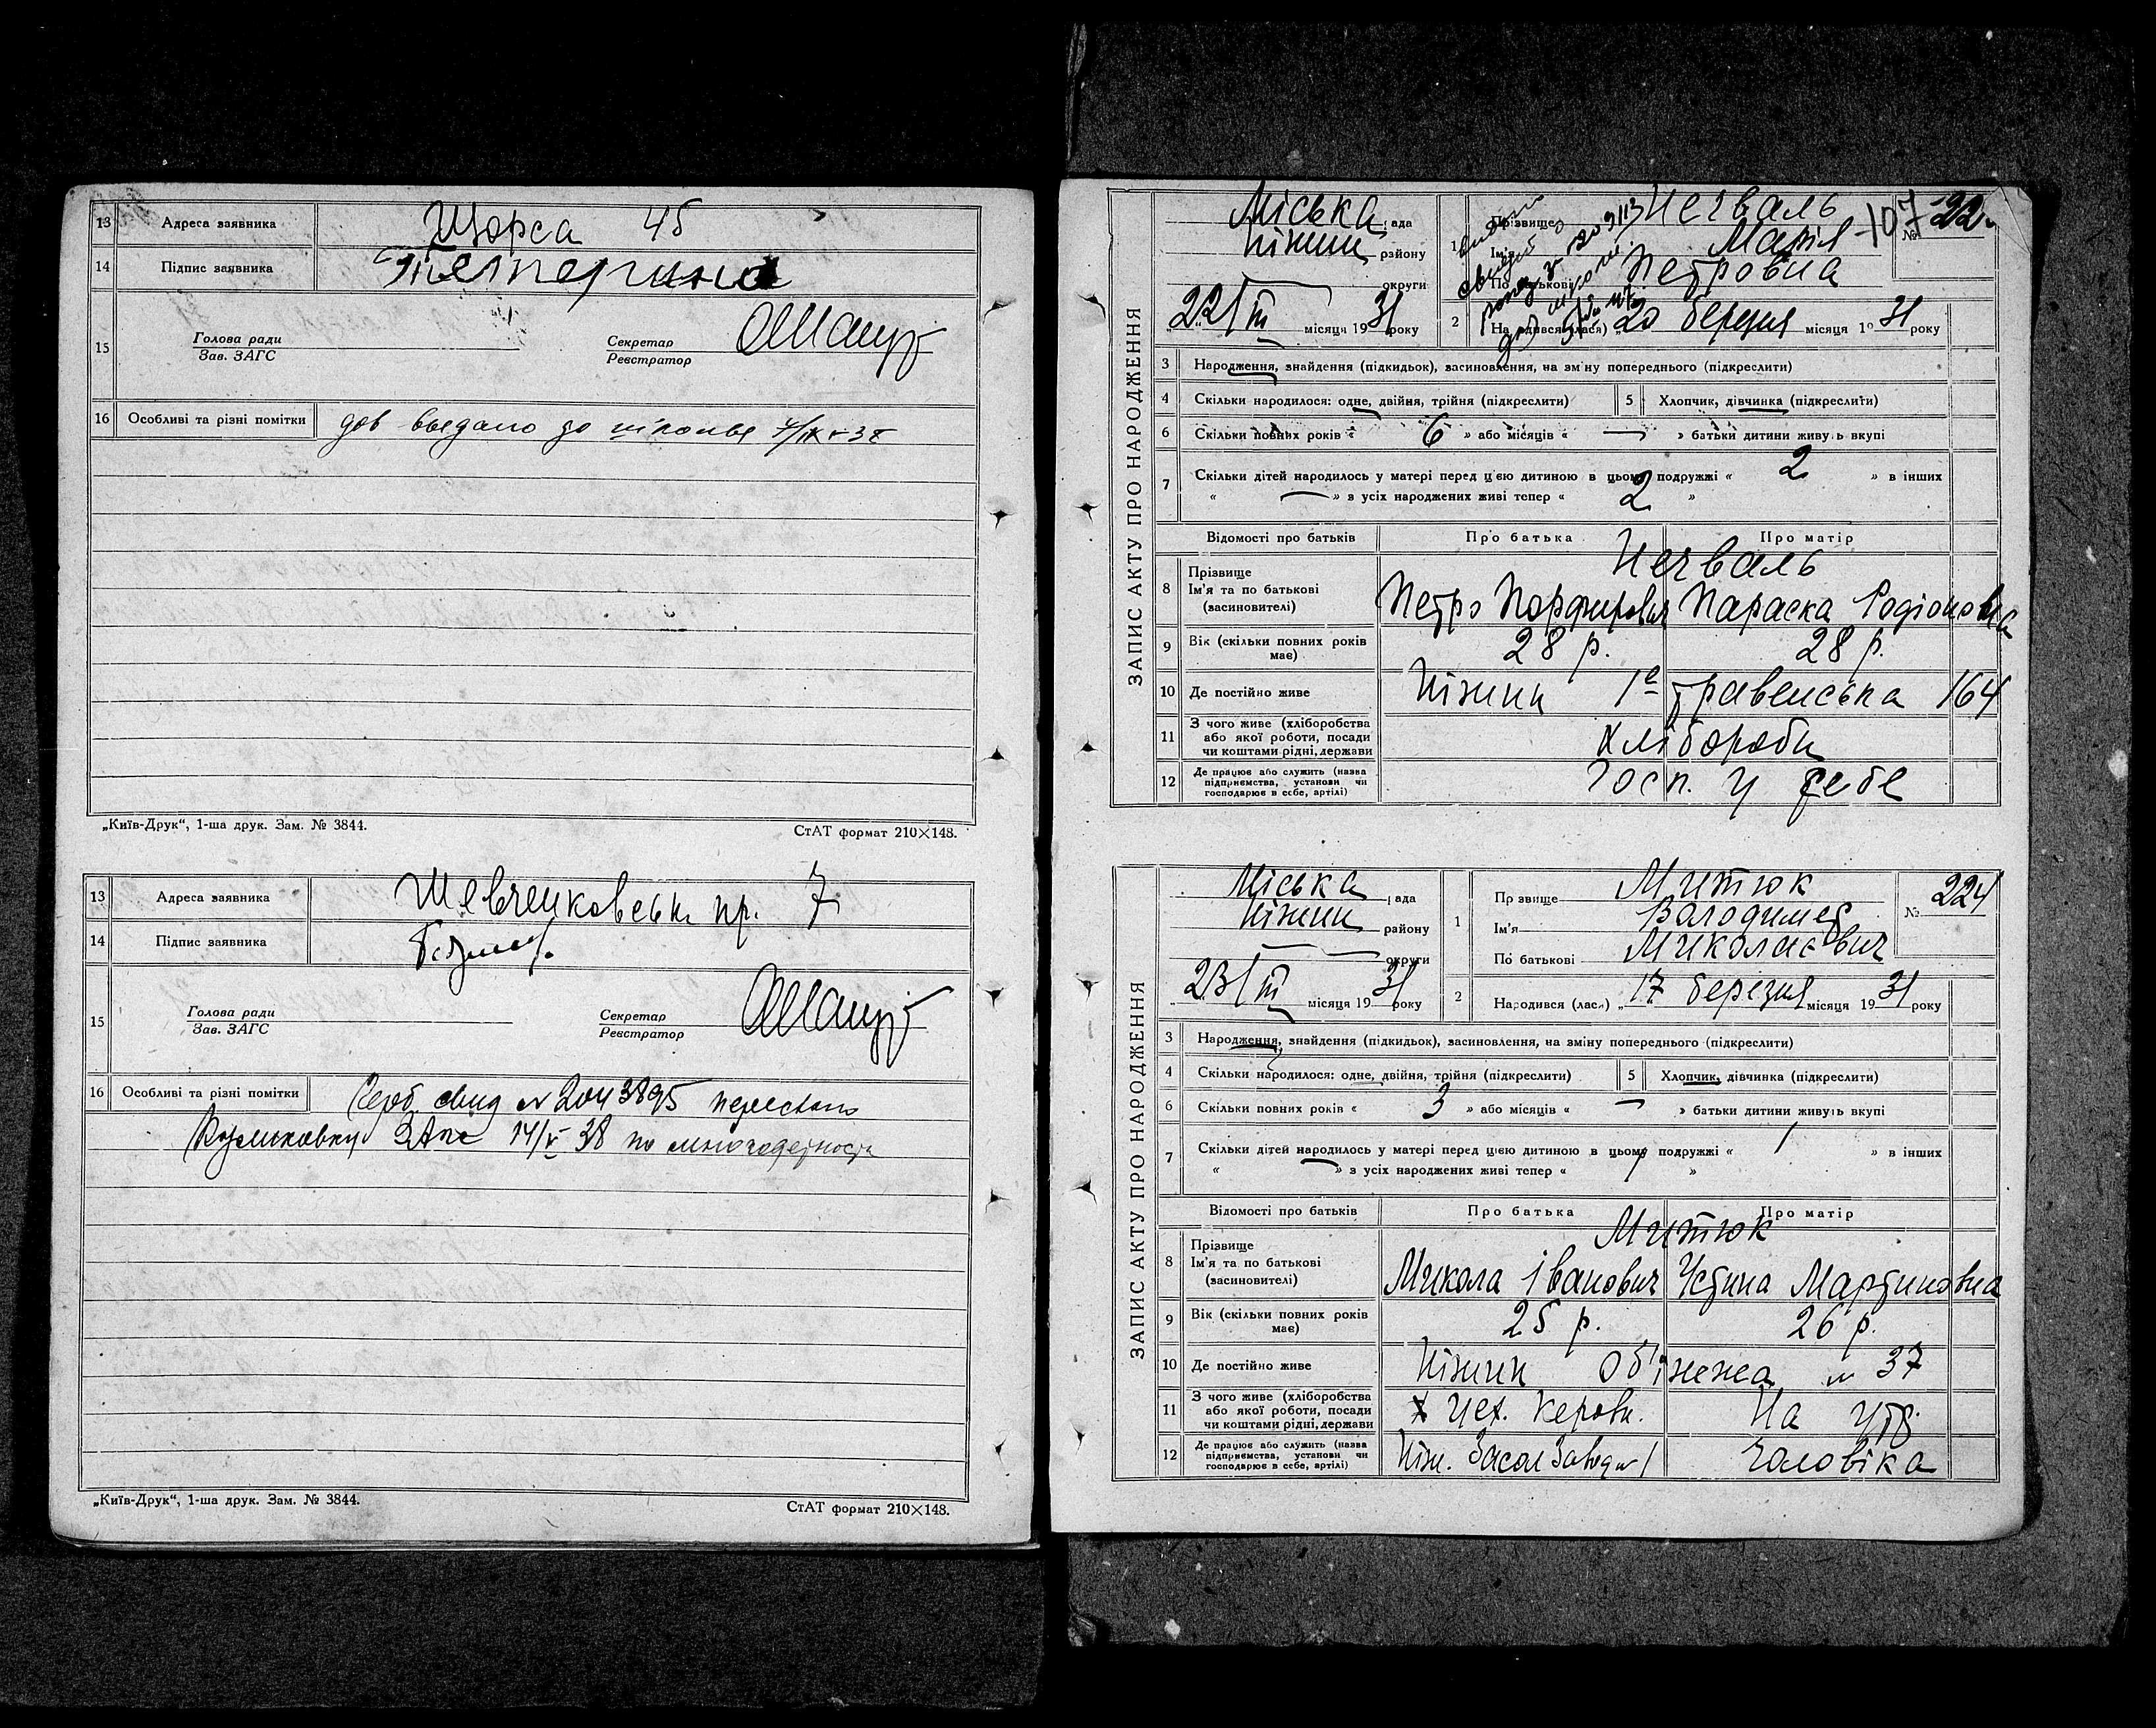 13 Адреса заявника Щорса 45
14 Підпис заявника Тетерина
15 Голова ради
Зав. ЗАГС
Секретар
Реєстратор
16 Особливі та різні помітки дов видано до школи
„Київ-Друк“, 1-ша друк. Зам. № 3844. СтАТ формат 210×148.
13 Адреса заявника Шевченковськ. пр. 7
14 Підпис заявника
15 Голова ради
Зав. ЗАГС
Секретар
Реєстратор
16 Особливі та різні помітки № 2043895
ЗАГС 14/V 38 по многодетности
„Київ-Друк“, 1-ша друк. Зам. № 3844. СтАТ формат 210×148.
ЗАПИС АКТУ ПРО НАРОДЖЕННЯ
Міська рада
Ніжин району
округи
22/III місяця 1931 року
107
1 Прізвище Нечваль
Ім'я Марія
По батькові Петровна
№
2 Народився (лася) „20 березня місяця 1931 року
3 Народження, знайдення (підкидьок), засиновлення, на зміну попереднього (підкреслити)
4 Скільки народилося: одне, двійня, трійня (підкреслити) 5 Хлопчик, дівчинка (підкреслити)
6 Скільки повних років « 6 » або місяців « — » батьки дитини живуть вкупі
7 Скільки дітей народилось у матері перед цією дитиною в цьому подружжі « 2 » в інших
« — » з усіх народжених живі тепер « 2 »
Відомості про батьків Про батька Про матір
8 Прізвище Нечваль
Ім'я та по батькові Петро Порфирович Параска Родіоновна
(засиновителі)
9 Вік (скільки повних років має) 28 р. 28 р.
10 Де постійно живе Ніжин 1е травенська 164
11 З чого живе (хліборобства або якої роботи, посади чи коштами рідні, держави Хлібороби
12 Де працює або служить (назва підприємства, установи чи господарює в себе, артілі) Госп. у себе
ЗАПИС АКТУ ПРО НАРОДЖЕННЯ
Міська рада
Ніжин району
округи
23/III місяця 1931 року
1 Прізвище Митюк
Ім'я Володимер
По батькові Миколаєвич
№ 224
2 Народився (лася) „17 березня місяця 1931 року
3 Народження, знайдення (підкидьок), засиновлення, на зміну попереднього (підкреслити)
4 Скільки народилося: одне, двійня, трійня (підкреслити) 5 Хлопчик, дівчинка (підкреслити)
6 Скільки повних років « 3 » або місяців « — » батьки дитини живуть вкупі
7 Скільки дітей народилось у матері перед цією дитиною в цьому подружжі « 1 » в інших
« — » з усіх народжених живі тепер « 1 »
Відомості про батьків Про батька Про матір
8 Прізвище Митюк
Ім'я та по батькові Микола Іванович Устина Мартиновна
(засиновителі)
9 Вік (скільки повних років має) 25 р. 26 р.
10 Де постійно живе Ніжин Об'їзжена № 37
11 З чого живе (хліборобства або якої роботи, посади чи коштами рідні, держави Цех. керовн. На утр.
12 Де працює або служить (назва підприємства, установи чи господарює в себе, артілі) Ніж. Засол Завод чоловіка